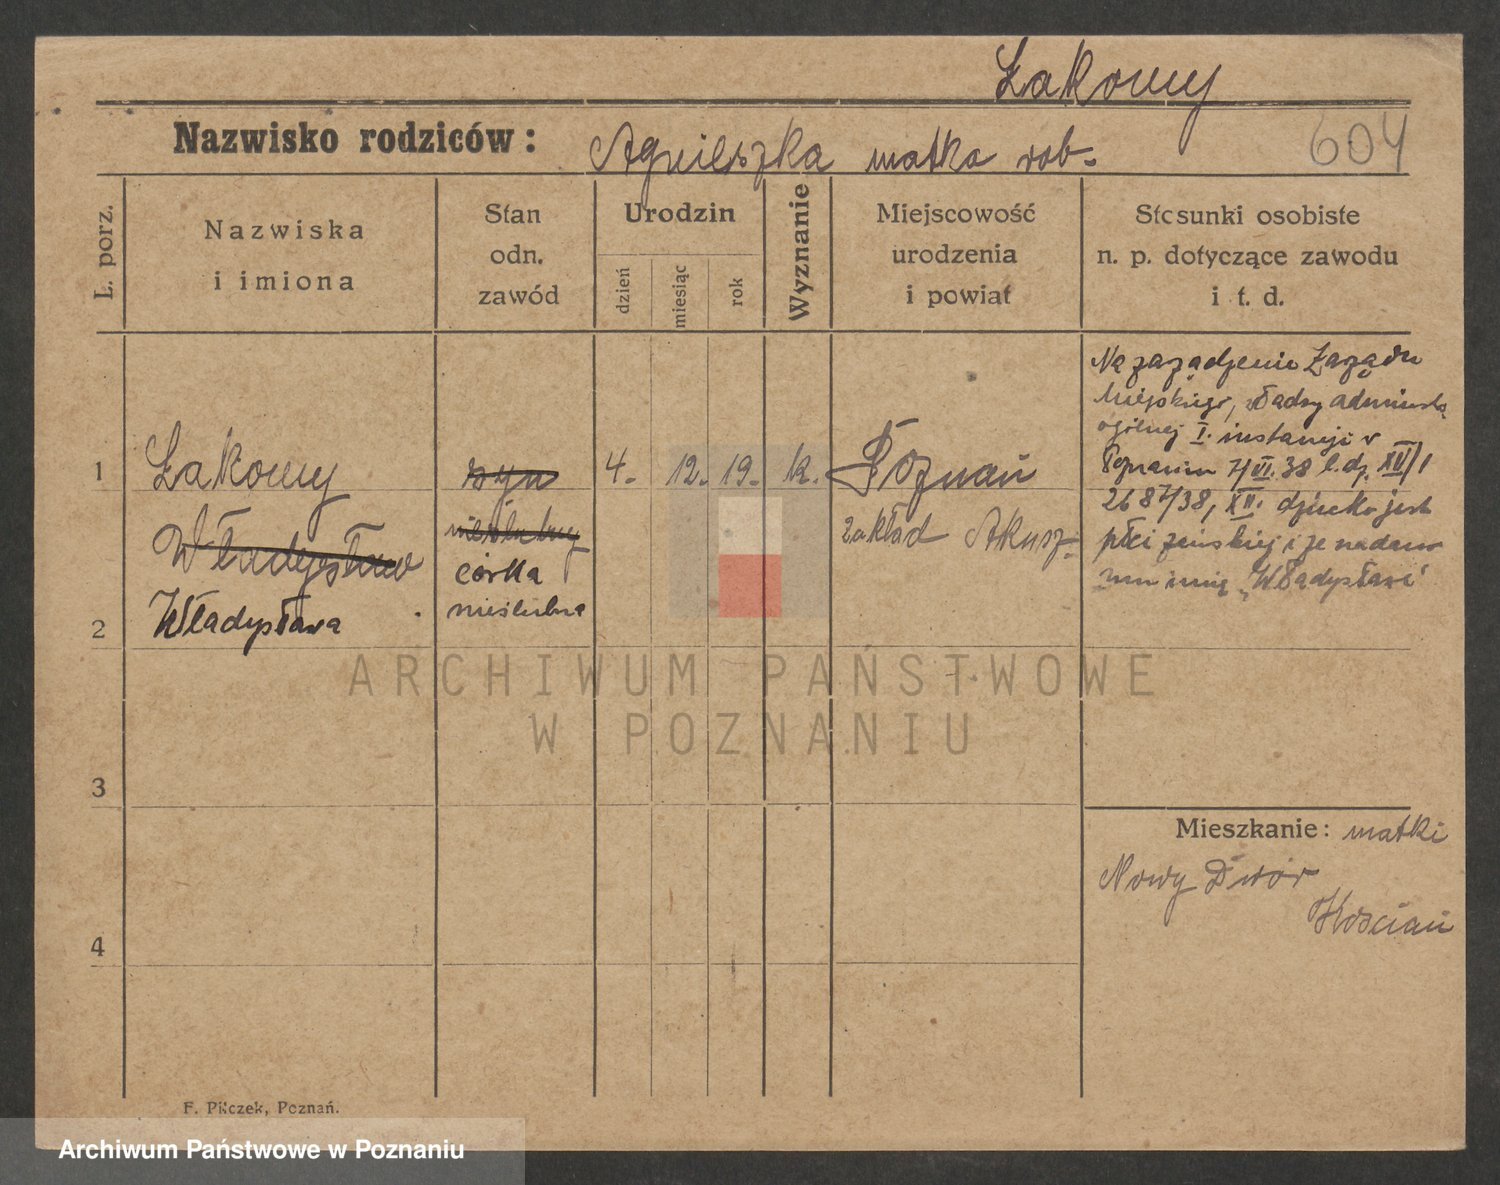 Łakowy
Nazwisko rodziców: Agnieszka matka rob.
604
L. porz.
Nazwiska
i imiona
Stan
odn.
zawód
Urodzin
dzień
miesiąc
rok
Wyznanie
Miejscowość
urodzenia
i powiat
Stosunki osobiste
n. p. dotyczące zawodu
i t. d.
1
Łakowy
Władysław
Władysława
syn
nieślubny
córka
nieślubna
4. 12. 19. k.
Poznań
zakład Akusz.
Na zarządzenie Zarządu
Miejskiego, władzy administr.
ogólnej I. instancji w
Poznaniu 7/VI.38 l.dz. XII/1
2687/38, XII. dziecko jest
płci żeńskiej i że nadano
mu imię „Władysława"
2
3
4
Mieszkanie: matki
Nowy Dwór
Kościan
F. Pilczek, Poznań.
ARCHIWUM PAŃSTWOWE
W POZNANIU
Archiwum Państwowe w Poznaniu